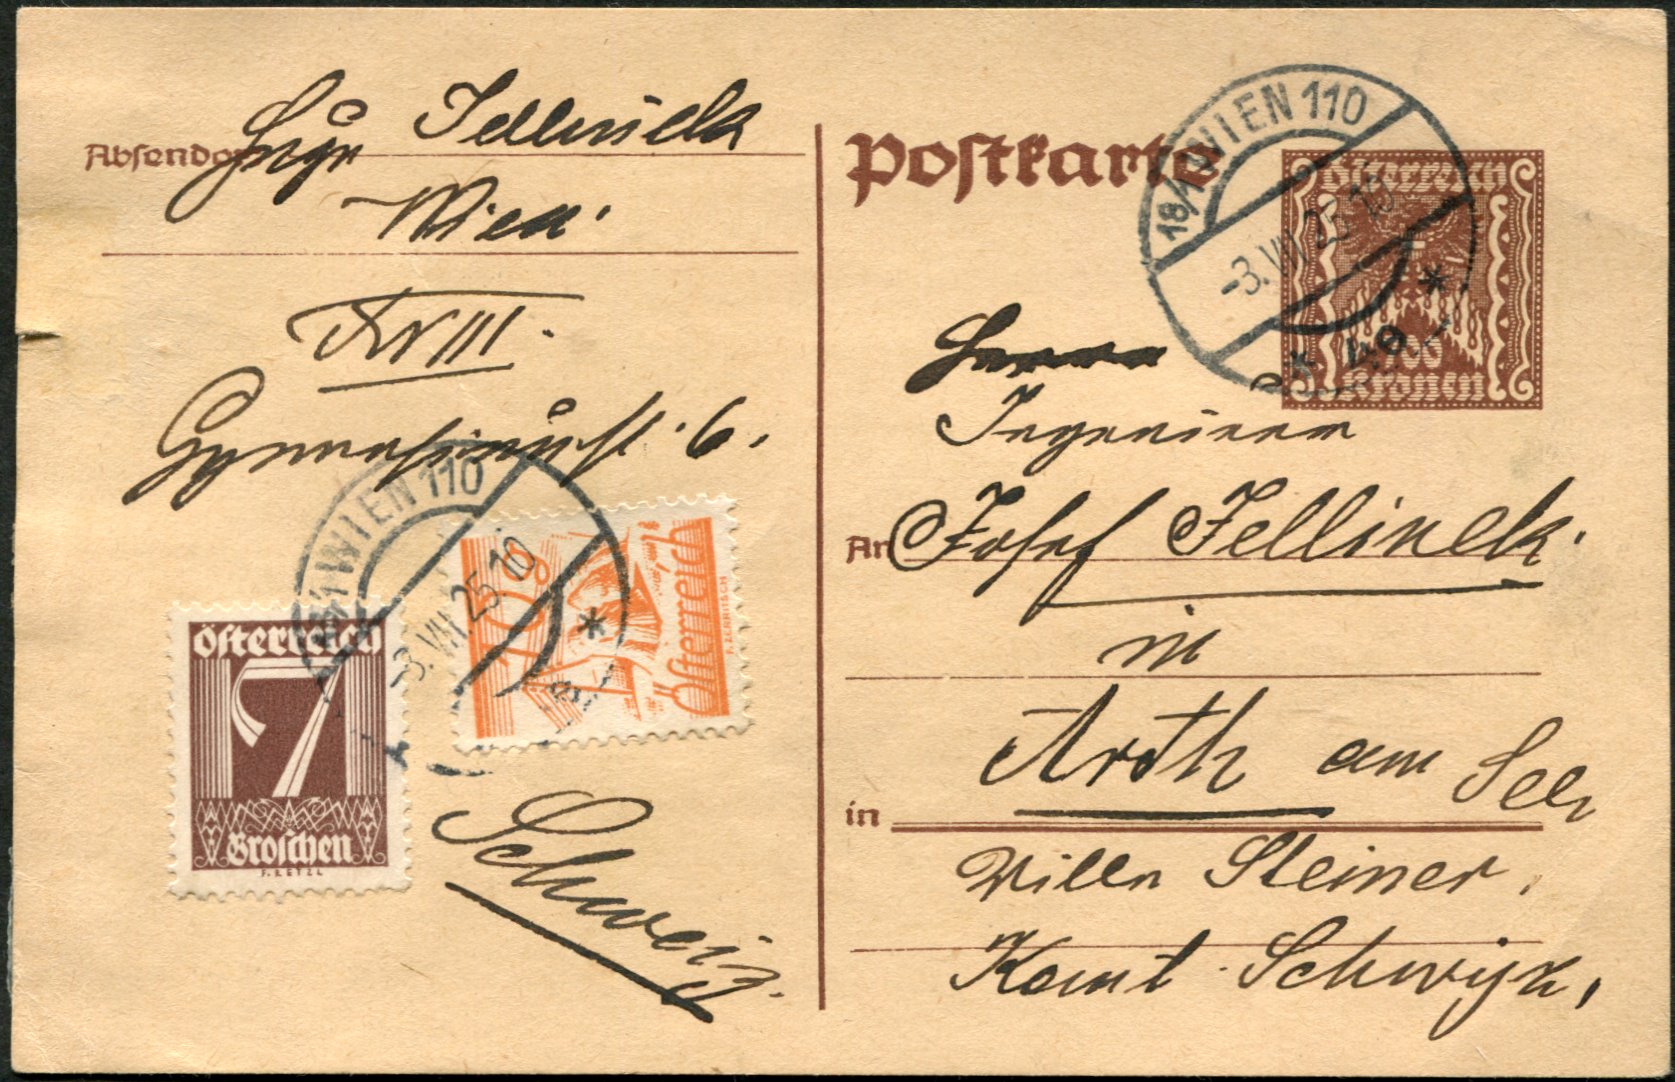 Absender
Jellinek
Wien.
XVIII.
Gymnasiumst. 6.
Postkarte
18/1 WIEN 110
-3. VII 25 10
* *
Österreich
Kronen
Herrn
Ingenieur
An Josef Jellinek.
in
in Arth am See
Villa Steiner,
Kant. Schwyz,
WIEN 110
-3. VII 25 10
*
Österreich
7
Groschen
F. RETZL
10 g
Österreich
Schweiz.